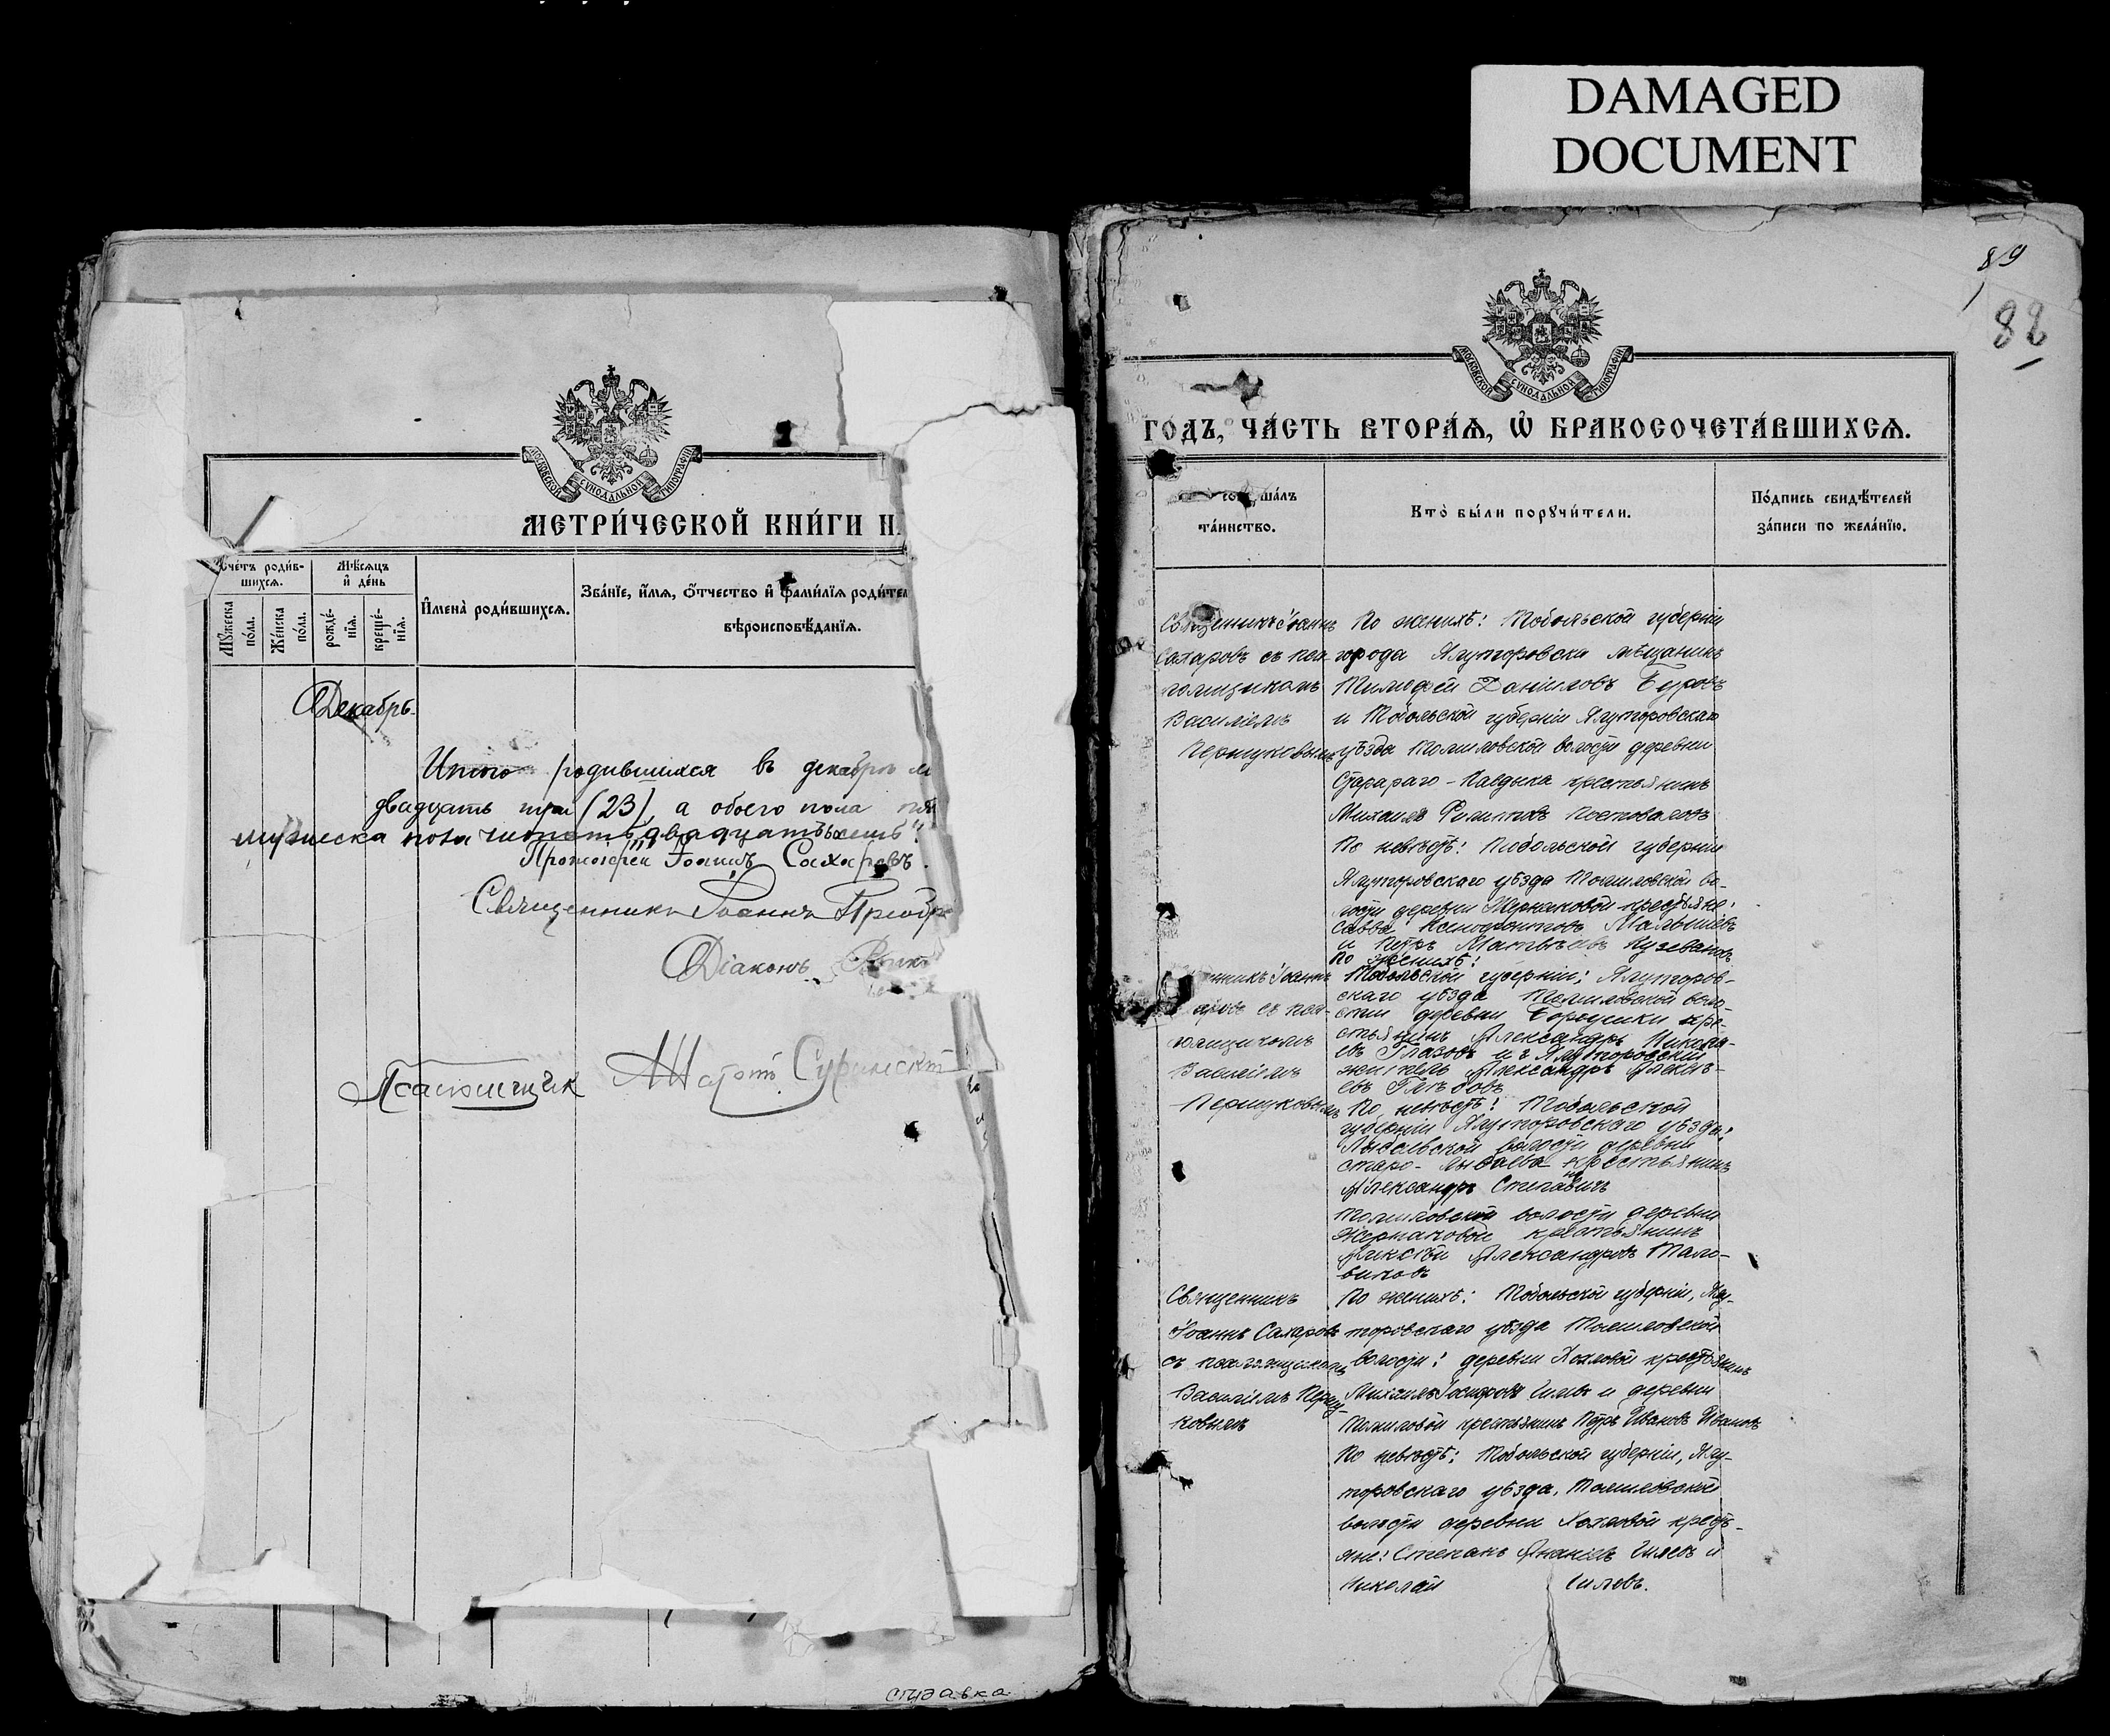 DAMAGED
DOCUMENT
89
88
МОСКОВСКОЙ СѴНОДАЛЬНОЙ ТИПОГРАФІИ
МЕТРИ́ЧЕСКОЙ КНИ́ГИ Н
Сче́тъ роди́в-
шихсѧ.
Мѣ́сѧцъ
и҆ де́нь
И҆мена̀ роди́вшихсѧ.
Зва́нїе, и҆́мѧ, ѻ҆́тчество и҆ фами́лїѧ роди́тел
вѣроисповѣ́данїѧ.
Мꙋ́жеска
по́ла.
Же́нска
по́ла.
рожде́-
нїѧ.
креще́-
нїѧ.
Декабрь
Итого родившихся въ декабрѣ м
двадцать три (23), а обоего пола
мужеска пола двадцать
Протоіерей Іоаннъ Сахаровъ.
Священникъ Іоаннъ Преобр
Діаконъ
Псаломщикъ
ставка
МОСКОВСКОЙ СѴНОДАЛЬНОЙ ТИПОГРАФІИ
ГО́ДЪ, ЧА́СТЬ ВТОРА́Ѧ, Ѽ БРАКОСОЧЕТА́ВШИХСѦ.
со ша́лъ
та́инство.
Кто̀ бы́ли порꙋчи́тели.
По́дпись свидѣ́телей
за́писи по жела́нїю.
Священникъ Іоаннъ
Сахаровъ съ пса-
ломщикомъ
Василіемъ
Першуковымъ
По женихѣ: Тобольской губерніи
города Ялуторовска мѣщанинъ
Тимофей Даніиловъ Буровъ
и Тобольской губерніи Ялуторовскаго
уѣзда Томиловской волости деревни
Стараго-Кавдыка крестьянинъ
Михаилъ Филиповъ Постоваловъ
По невѣстѣ: Тобольской губерніи
Ялуторовскаго уѣзда Томиловской во-
лости деревни Жернаковой крестьяне:
Савва Ксенофонтовъ Малышевъ
и Петръ Матвѣевъ Кузевановъ
нникъ Іоаннъ
аровъ съ пса-
ломщикомъ
Василіемъ
Першуковымъ
По женихѣ:
Тобольской губерніи: Ялуторов-
скаго уѣзда Томиловской воло-
сти деревни Бородинки кре-
стьянинъ Александръ Никола-
евъ Глазовъ и г. Ялуторовскій
житель Александръ Алексѣ-
евъ Глѣбовъ
По невѣстѣ: Тобольской
губерніи Ялуторовскаго уѣзда:
Лыбаевской волости деревни
старо-Лыбаева крестьянинъ
Александръ Степановичъ
Томиловской волости деревни
Жернаковой крестьянинъ
Алексѣй Александровъ
Священникъ
Іоаннъ Сахаровъ
съ псаломщикомъ
Василіемъ Першу-
ковымъ
По женихѣ: Тобольской губерніи, Ялу-
торовскаго уѣзда Томиловской
волости: деревни Хохловой крестьянинъ
Михаилъ Іосифовъ Чилевъ и деревни
Томиловой крестьянинъ Петръ Ивановъ Ивановъ
По невѣстѣ: Тобольской губерніи, Ялу-
торовскаго уѣзда, Томиловской
волости деревни Хохловой кресть-
яне: Степанъ Ананіевъ Чилевъ и
Николай Чилевъ.